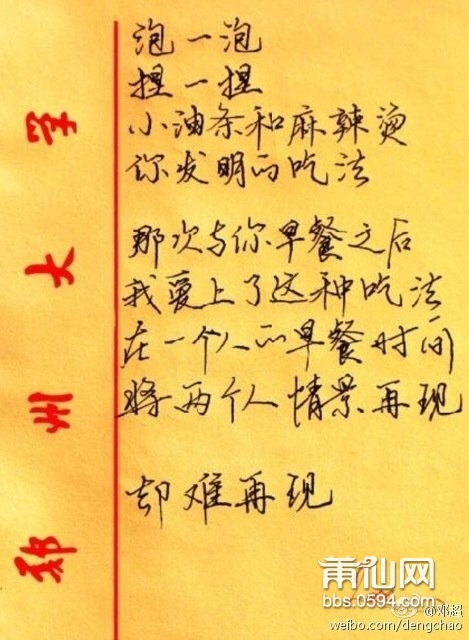 泡一泡
捏一捏
小油条和麻辣烫
你发明的吃法
那次与你早餐之后
我爱上了这种吃法
在一个人的早餐时间
将两个人情景再现
却难再现
郑州大学
莆仙网
bbs.0594.com
@邓超
weibo.com/dengchao